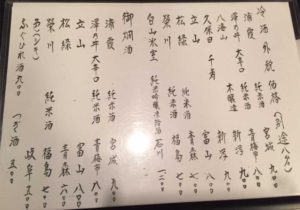 冷酒 外税価格 (別途八%)
浦霞 純米酒 宮城 九〇〇
澤乃井 大辛口 本醸造
八海山 新潟 九〇〇
久保田 千寿 新潟
立山 富山 八〇〇
松緑 純米酒 青森
栄川 純米酒 福島 七〇〇
白山氷室 純米吟醸凍結酒 石川
御燗酒
浦霞 純米酒 宮城 九〇〇
澤乃井 大辛口 純米酒 青梅市 八〇〇
立山 富山 八〇〇
松緑 青森 六〇〇
栄川 純米酒 福島 七〇〇
岐阜 五〇〇
ふぐひれ酒 九〇〇 つぎ酒 五〇〇